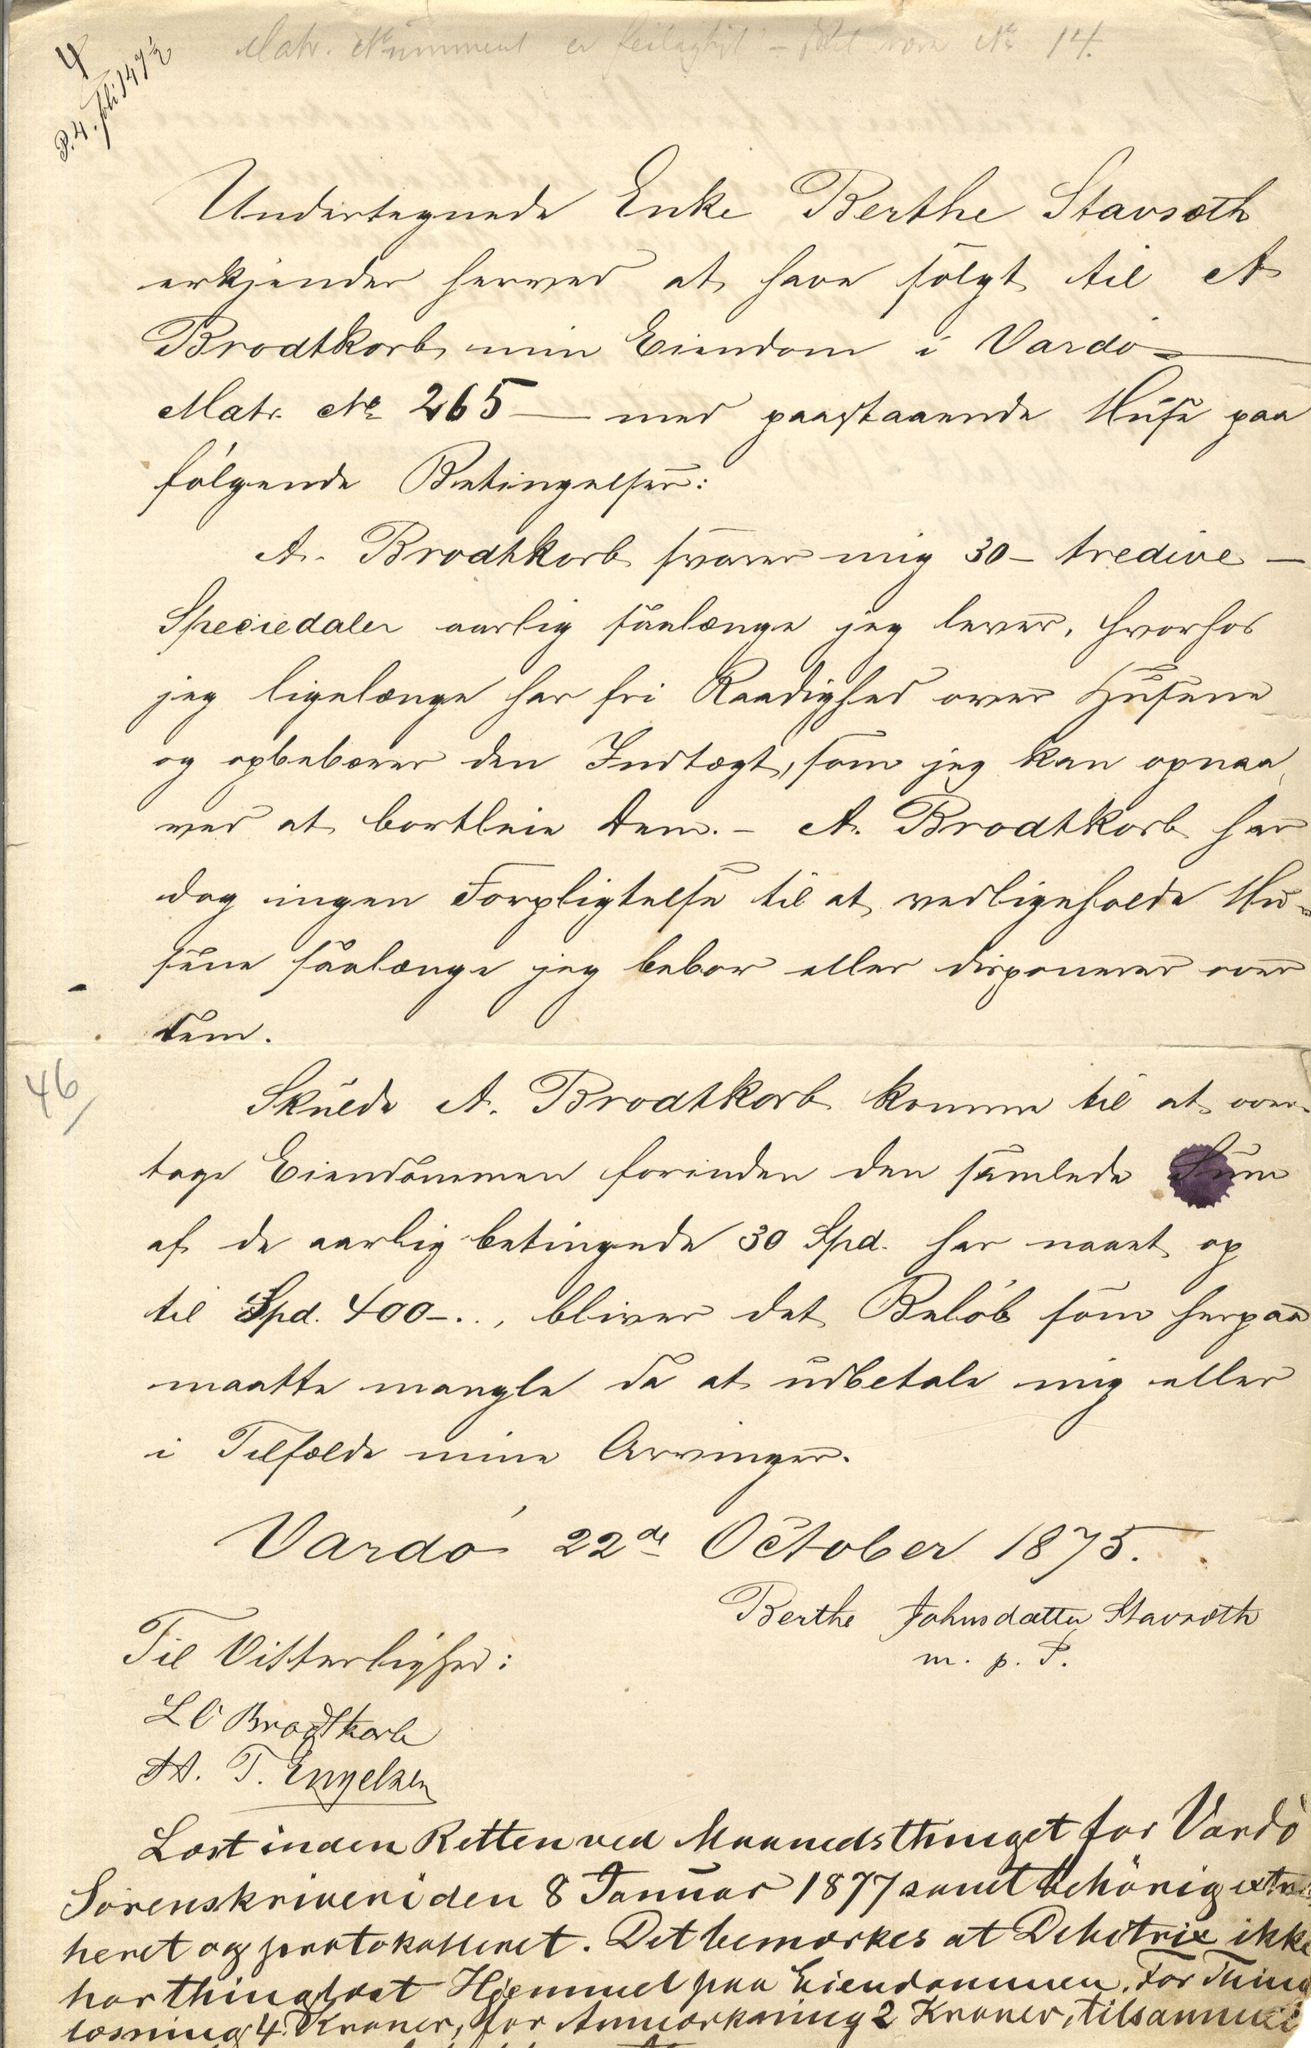 Matr. Nummeret er feilagtigt – skal være No 14.
4
P. 4. foli 147½
Undertegnede Enke Berthe Stavsæth
erkjender herved at have sölgt til A
Brodtkorb min Eiendom i Vardö
Matr. No 265 — med paastaaende Huse paa
fölgende Betingelser:
A. Brodtkorb svarer mig 30 – tredive –
Speciedaler aarlig saalænge jeg lever, hvorhos
jeg ligelænge har fri Raadighed over Husene
og opbebærer den Indtægt, som jeg kan opnaa
ved at bortleie dem. – A. Brodtkorb har
dog ingen Forpligtelse til at vedligeholde Hu-
sene saalænge jeg bebor eller disponerer over
dem.
46
Skulde A. Brodtkorb komme til at over-
tage Eiendommen forinden den samlede Sum
af de aarlig betingede 30 Spd. har naaet op
til Spd. 400 – . . , bliver det Belöb som herpaa
maatte mangle da at udbetale mig eller
i Tilfælde mine Arvinger.
Vardö 22de October 1875.
Berthe Johnsdatter Stavsæth
m. p. P.
Til Vitterlighed:
L C Brodtkorb
A. T. Engelsen
Læst inden Retten ved Maanedsthinget for Vardö
Sorenskriveri den 8 Januar 1877 samt behörig extra
heret og protokolleret. Det bemærkes at Debitrix ikke
har thinglæst Hjemmel paa Eiendommen. For Thing
læsning 4 Kroner, for Anmærkning 2 Kroner, tilsammen